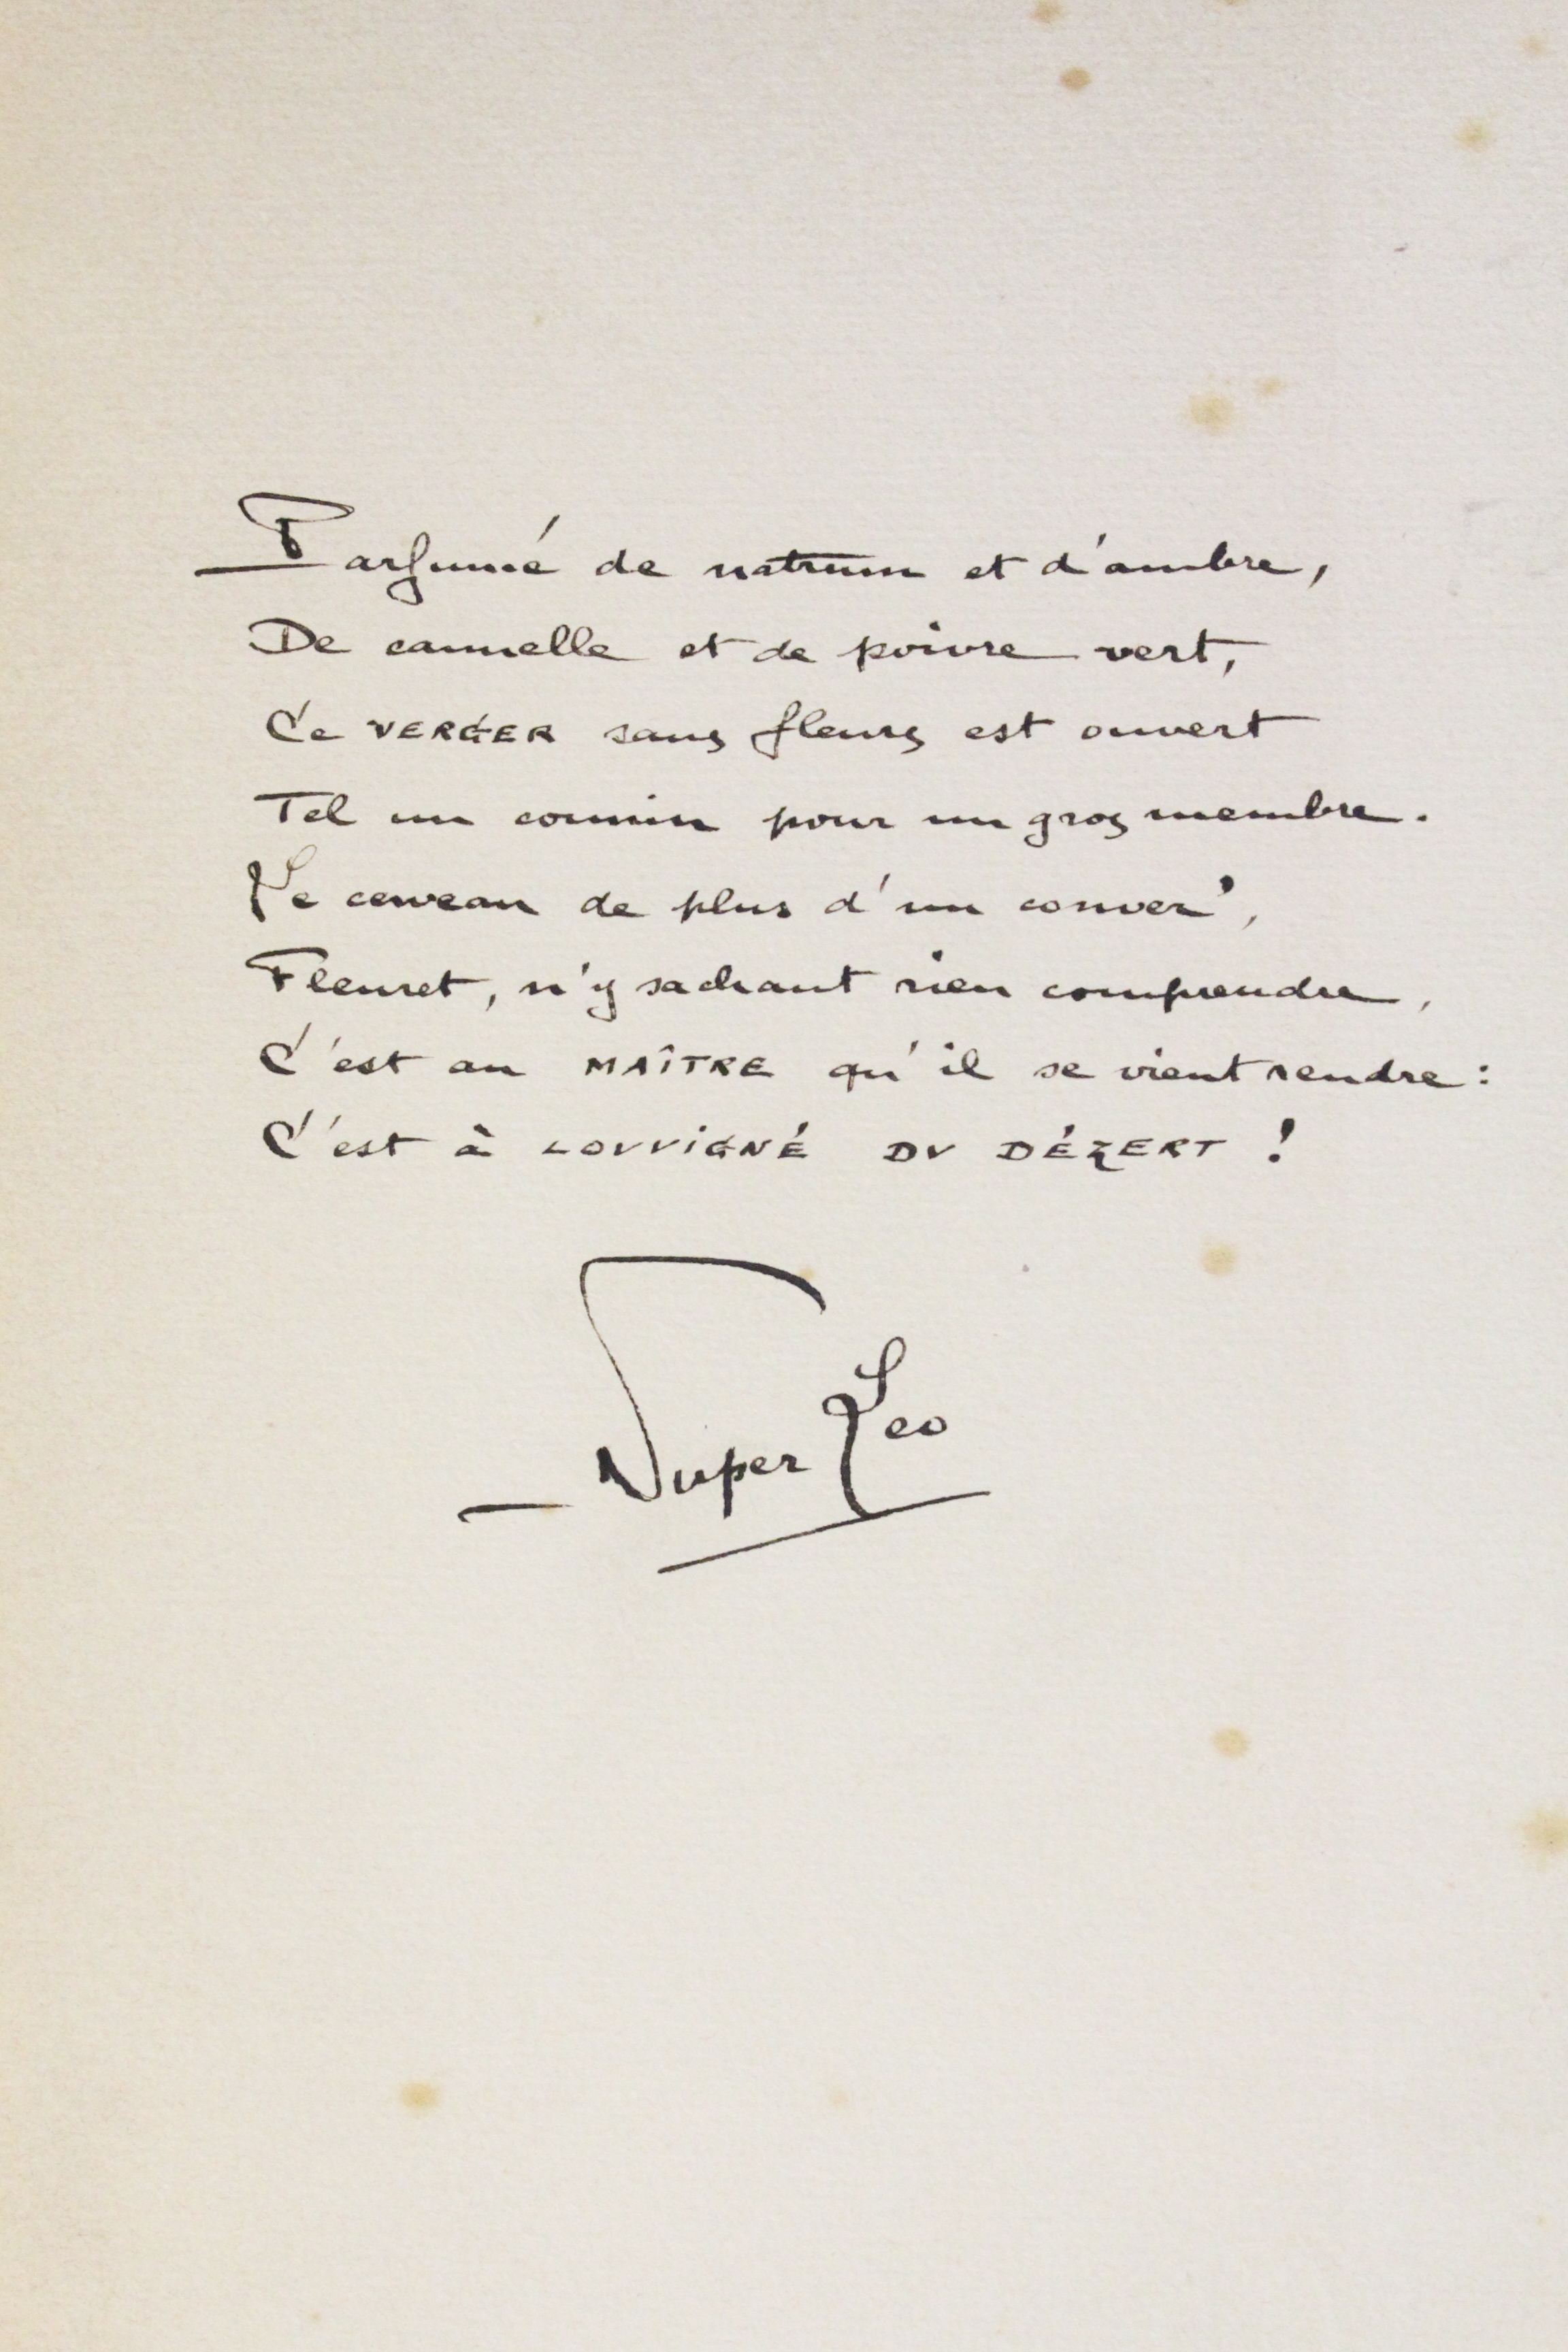 Parfumé de natrum et d'ambre,
De cannelle et de poivre vert,
Ce VERGER sans fleurs est ouvert
Tel un connin pour un gros membre.
Le cerveau de plus d'un conver',
Fleuret, n'y sachant rien comprendre,
C'est au MAÎTRE qu'il se vient rendre :
C'est à LOVVIGNÉ DV DÉZERT !
Super Leo